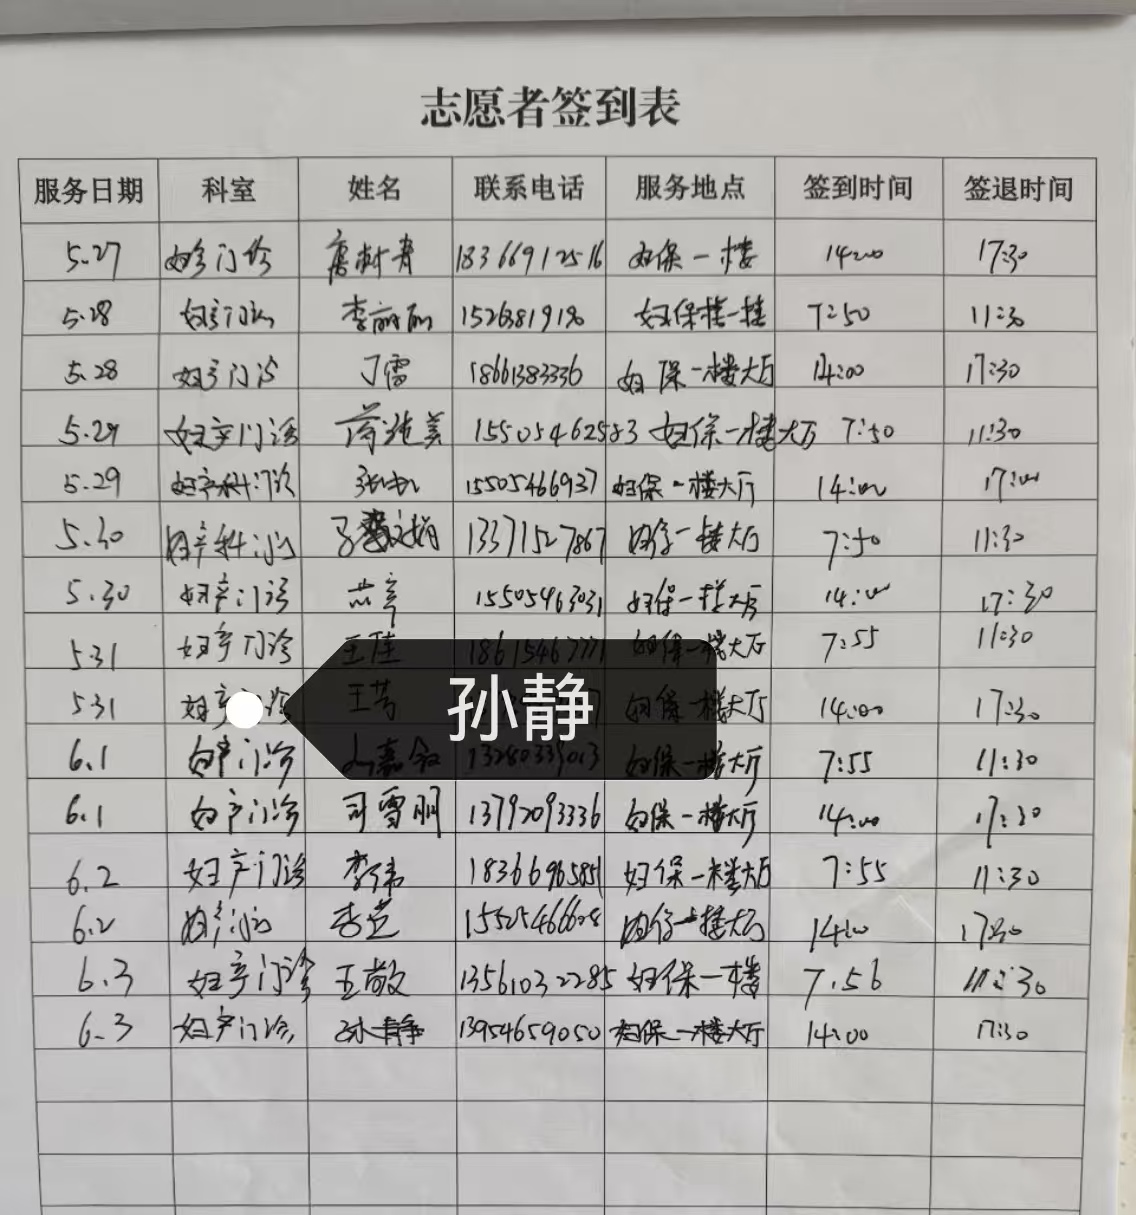 志愿者签到表
服务日期 科室 姓名 联系电话 服务地点 签到时间 签退时间
5.27 妇产门诊 18366912516 妇保一楼 14:00 17:30
5.28 妇产门诊 李丽丽 妇保楼一楼 7:50 11:30
5.28 妇产门诊 丁雪 18661383336 妇保一楼大厅 14:00 17:30
5.29 妇产门诊 15505462583 妇保一楼大厅 7:50 11:30
5.29 妇产科门诊 15505466937 妇保一楼大厅 14:00 17:00
5.30 妇产科门诊 13371527867 妇保一楼大厅 7:50 11:30
5.30 妇产门诊 15505463031 妇保一楼大厅 14:00 17:30
5.31 妇产门诊 王佳 18615467771 妇保一楼大厅 7:55 11:30
5.31 妇产门诊 王芳 妇保一楼大厅 14:00 17:30
孙静
6.1 妇产门诊 13280339013 妇保一楼大厅 7:55 11:30
6.1 妇产门诊 司雪明 13792093336 妇保一楼大厅 14:00 17:30
6.2 妇产门诊 李伟 18366965851 妇保一楼大厅 7:55 11:30
6.2 妇产门诊 妇保一楼大厅 14:00 17:30
6.3 妇产门诊 王敬 13561032285 妇保一楼 7.56 11:30
6.3 妇产门诊 孙静 13954659050 妇保一楼大厅 14:00 17:30